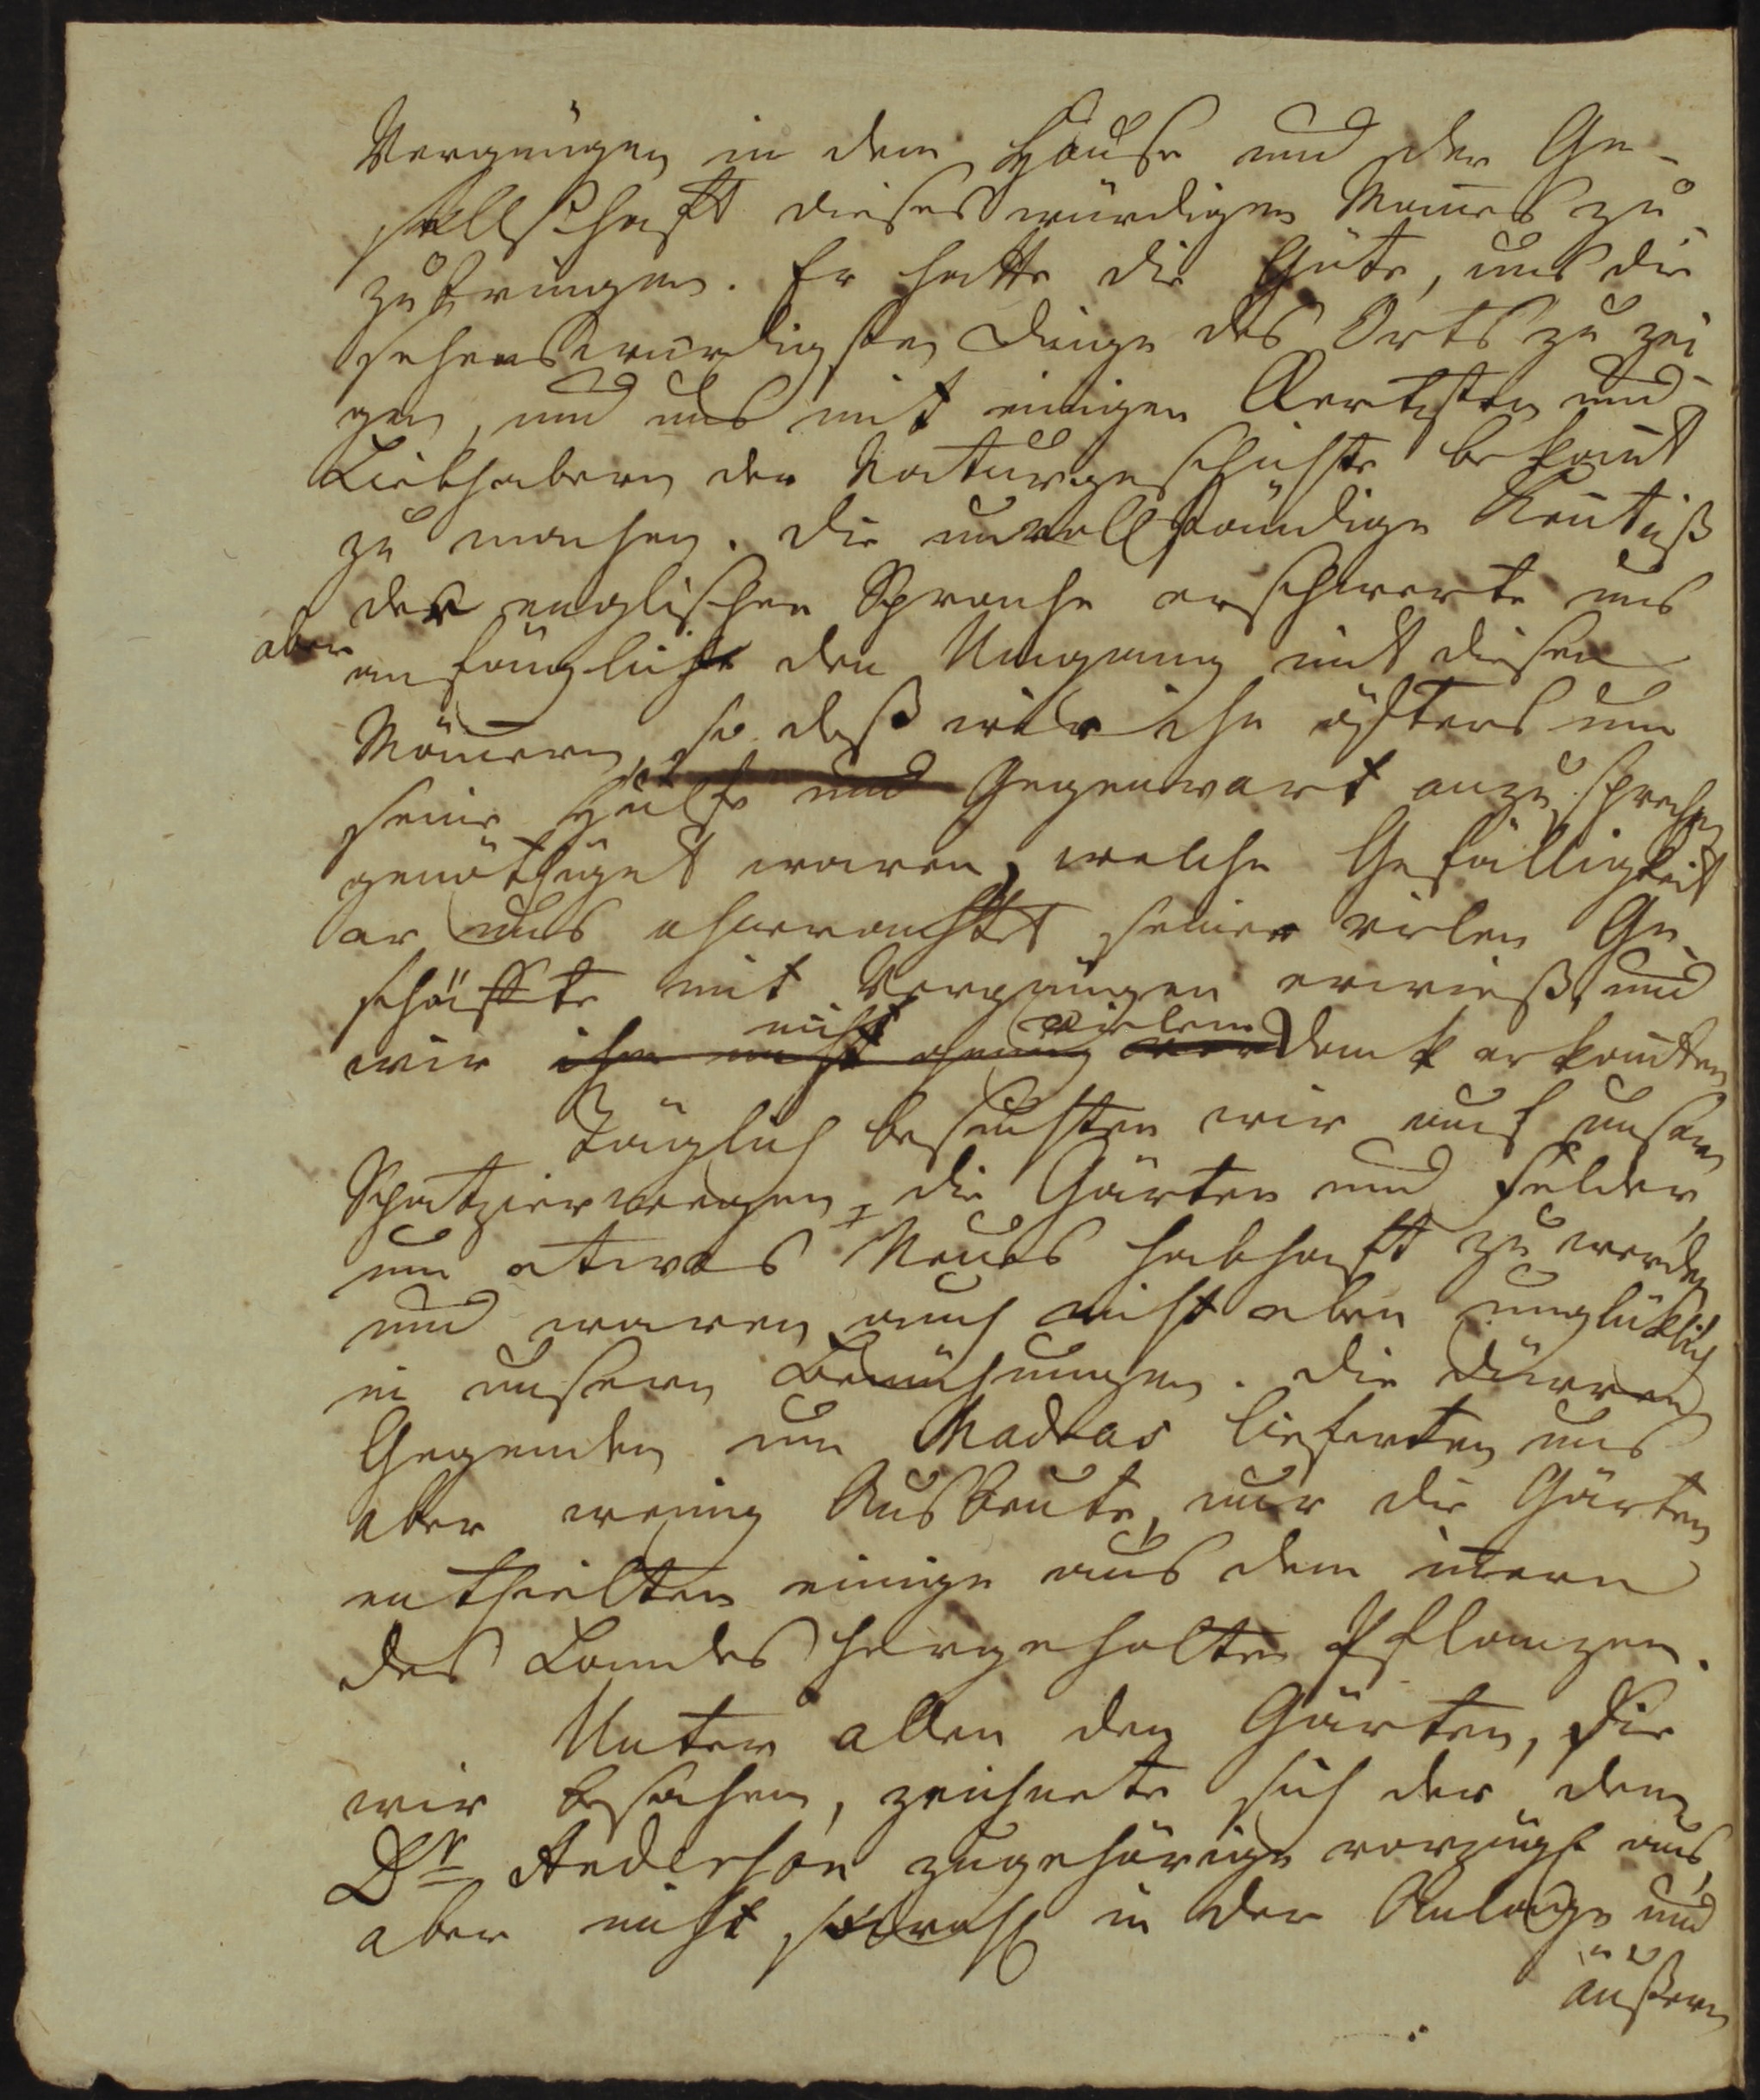 Vergnügen in dem Hause und der Ge-
sellschaft dieses würdigen Mannes zu
zubringen. Er hatte die Güte, uns die
sehenswürdigsten Dinge des Orts zu zei-
gen, und uns mit einigen Aertzten und
Liebhabern der Naturgeschichte bekannt
zu machen. Die unvollständige Kentniß
der englischen Sprache erschwerte uns
aber anfänglich den Umgang mit diesen
Männern, so daß wir ihn öfters um
seine Hülfe und Gegenwart anzusprechen
genöthiget waren, welche Gefälligkeit
er uns ohnerachtet seiner vielen Ge-
schäffte mit Vergnügen erwieß, und
nicht vielem
wir ihm nicht genug Dank erkannten
Täglich besuchten wir auf unsern
Spatzierwegen, die Gärten und Felder,
um etwas Neues habhaft zu werden
und waren auch nicht eben unglüklich
in unsern Bemühungen. Die dürren
Gegenden um Madras lieferten uns
aber wenig Ausbeute, nur die Gärten
enthielten einige aus dem innern
des Landes hergeholte Pflanzen.
Unter allen den Gärten, die
wir besahen, zeichnete sich der dem
Dr Anderson zugehörige vorzügl aus,
aber nicht sowohl in der Anlage und
äußern